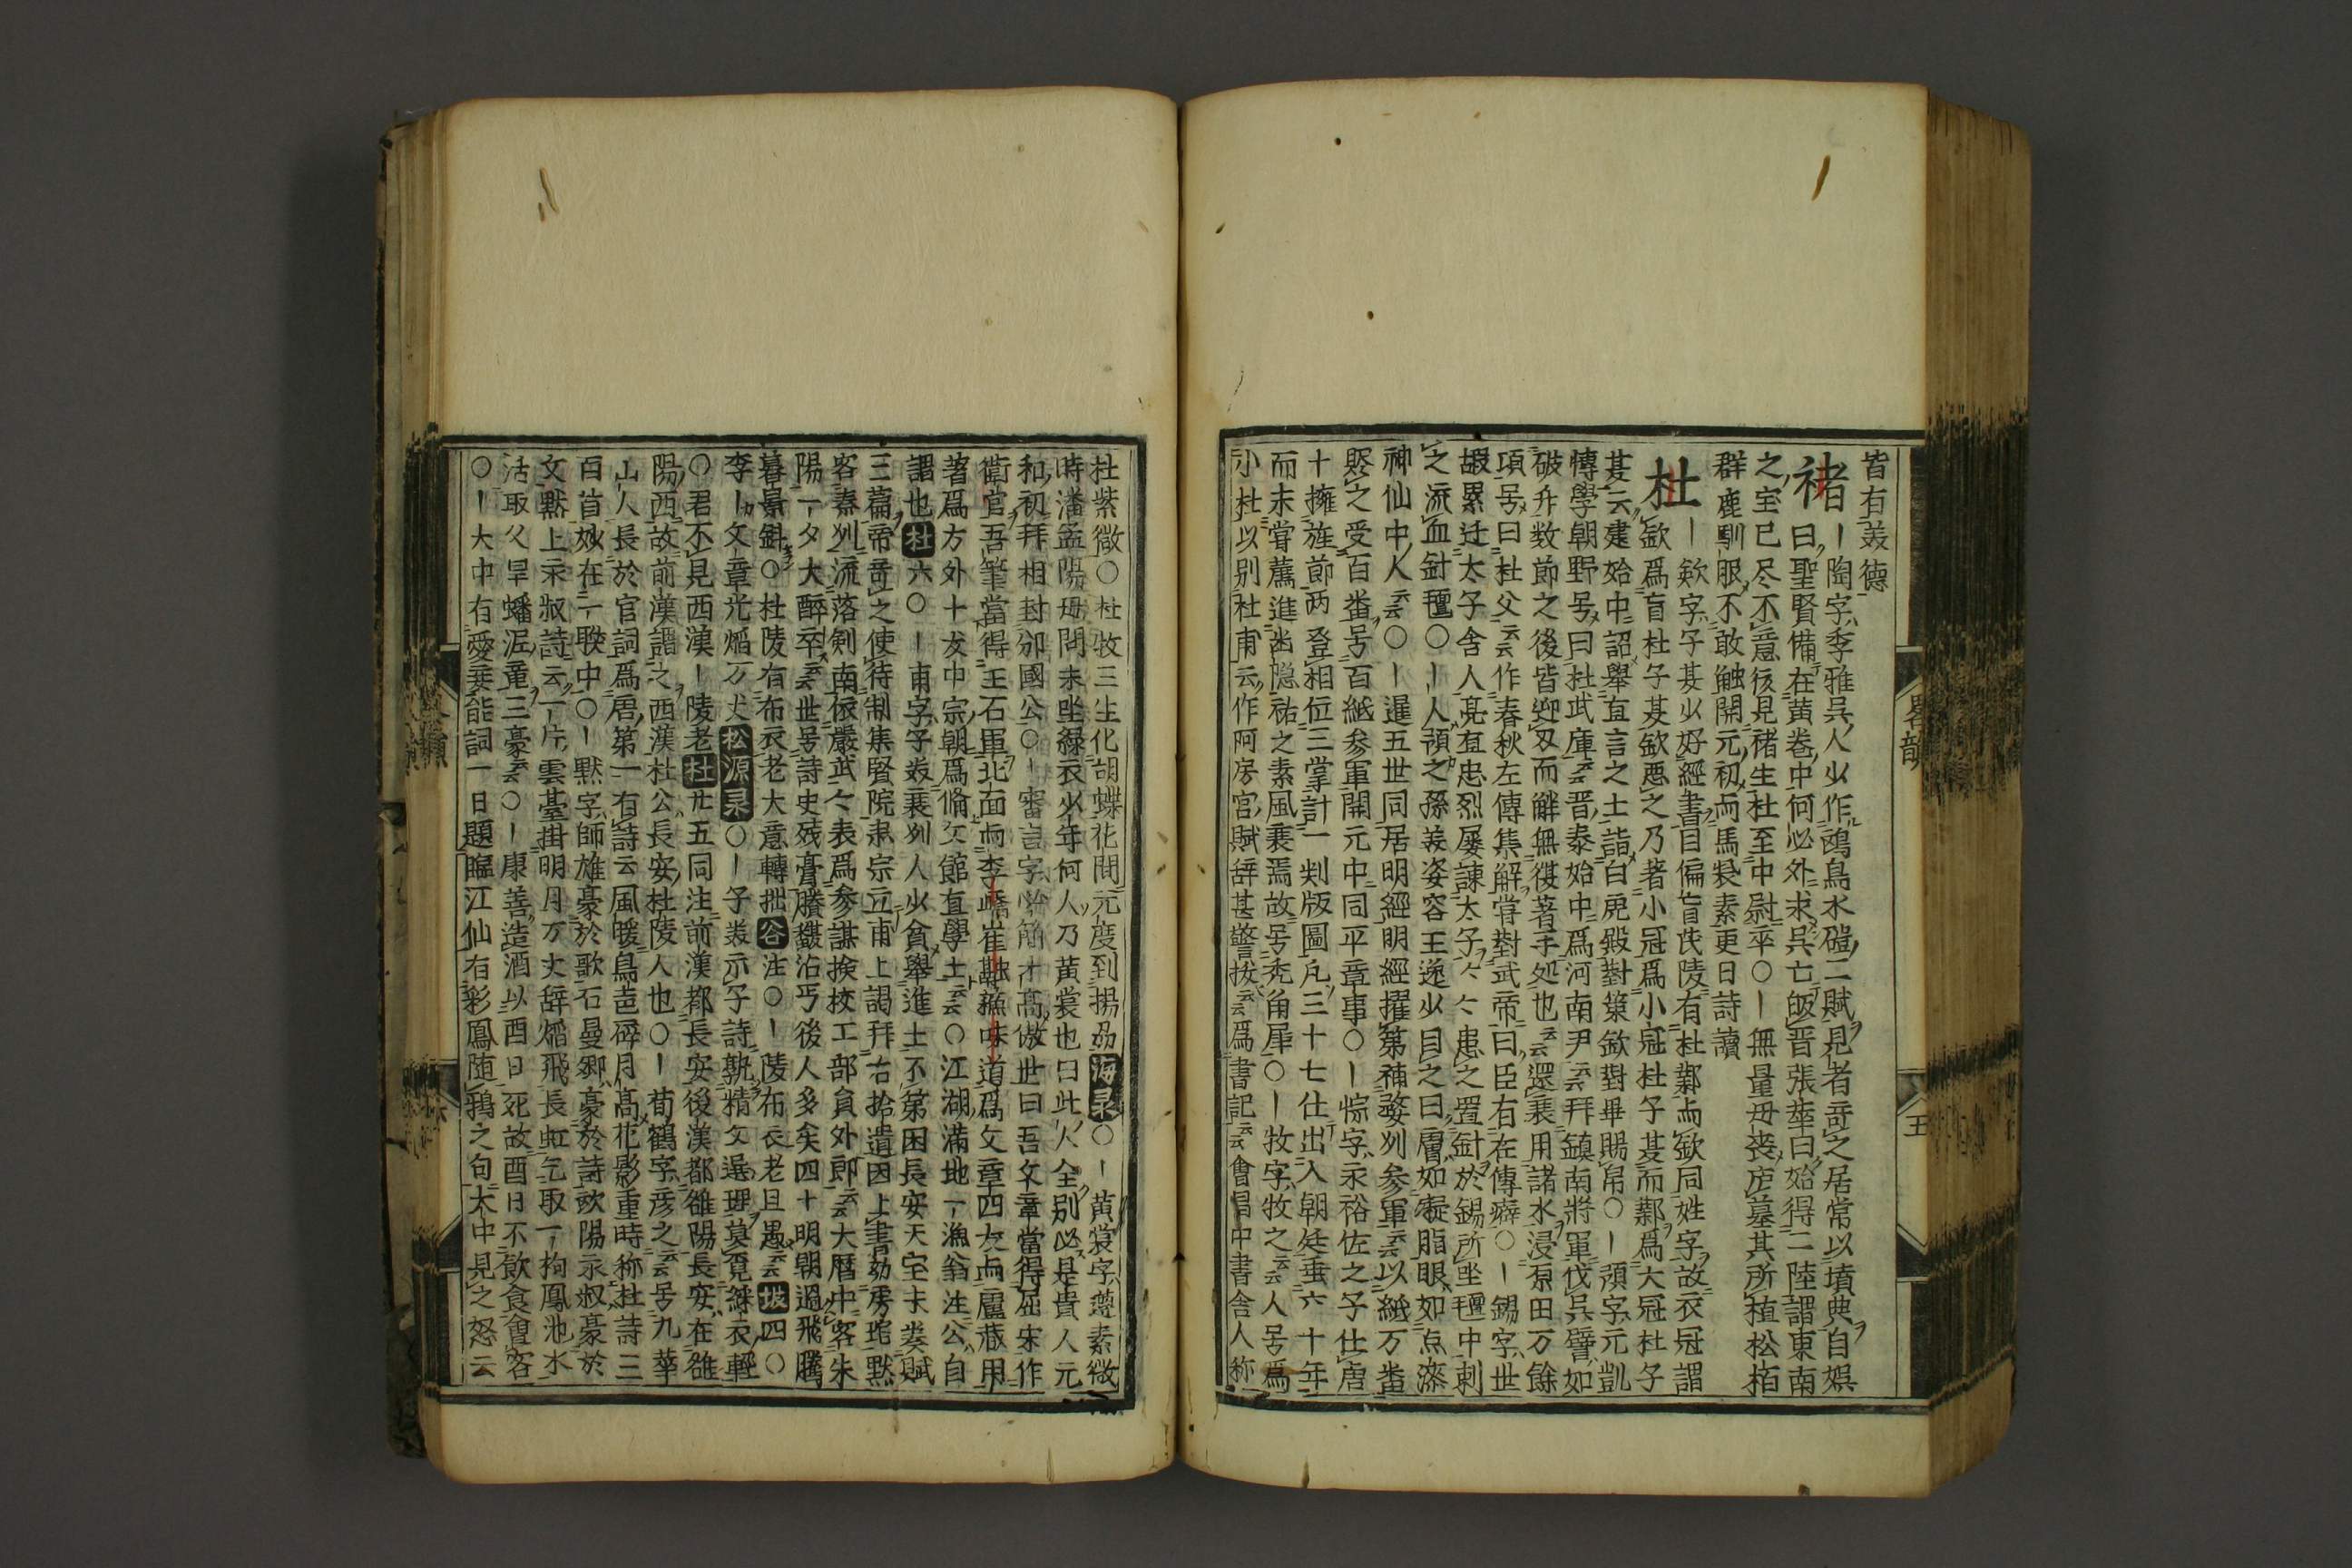 皆有美德
褚 ー陶字、季雅呉人少作鴎鳥水磑二賦見者竒之居常以墳典自娯
曰聖賢備在黄巻中何必外求呉亡皈晋張華曰始得二陸謂東南
之宝已尽不意復見褚生杜至中尉卒○ー無量母喪庐墓其所植松栢
群鹿馴服不敢触開元初両馬褧素更日詩讀
杜 ー欽字、子夏少好經書目偏盲茂陵有杜鄴両欽同姓字故衣冠謂
欽爲盲杜子夏欽悪之乃著小冠爲小冠杜子夏而鄴爲大冠杜子
夏云建始中詔舉直言之士詣白虎殿對策欽對畢賜帛○ー預字、元凱
愽學朝野号曰杜武庫云云晋泰始中爲河南尹云云拜鎮南將軍伐呉譬如
破竹数節之後皆迎刃而解無復著手処也云云還襄用諸水浸原田万餘
項号曰杜父云云作春秋左傳集解甞對武帝曰臣有左傳癖○ー錫字、世
嘏累迁太子舎人亮直忠烈屡諌太子々々患之置針於錫所坐氊中刺
之流血針氊○ー人預之孫美姿容王逸少目之曰膚如凝脂眼如点漆
神仙中人云云○ー暹五世同居明經明經擢第補婺州参軍云云以紙万畨
賕之受百畨号百紙参軍開元中同平章事○ー悰字、永裕佐之子仕唐
十擁旌節両登相位三掌計一判版圖凡三十七仕出入朝廷垂六十年
而未甞薦進幽隠祐之素風衰焉故号禿角犀○ー牧字、牧之云云人号爲
小杜以别杜甫云作阿房宮賦辞甚警拔云云爲書記云云會昌中書舎人称
杜紫微○杜牧三生化胡蝶花間元度到揚州海录○ー黄裳字、遵素微
時潘孟陽母問末坐緑衣少年何人乃黄裳也曰此人全别必是貴人元
和初拜相封邠國公○ー審言字、必簡才髙傲世曰吾文章當得屈宋作
衙官吾筆當得王石軍北面両李嶠崔融蘇味道爲文章四友両盧藏用
著爲方外十友中宗朝爲脩文館直學士云云○江湖滿地一漁翁注公自
謂也杜六○ー甫字、子美襄州人少貧舉進士不第困長安天宝末奏賦
三篇帝竒之使待制集賢院肅宗立甫上謁拜右拾遺因上書劾房琯黙
客秦州流落剣南依嚴武々表爲参謀撿校工部貟外郎云云大暦中客朱
陽一夕大醉卒云云世号詩史残膏賸馥沾丐後人多矣四十明朝過飛騰
暮景斜○杜陵有布衣老大意轉拙谷注○ー陵布衣老且愚云云坡四○
李ー文章光熖万丈松源录○ー子美示子詩孰精文選理莫覓綵衣輕
○君不見西漢ー陵老杜廿五同注前漢都長安後漢都雒陽長安在雒
陽西故前漢謂之西漢杜公長安杜陵人也○ー荀鶴字、彦之云云号九華
山人長於官詞爲唐第一有詩云風暖鳥声碎月髙花影重時称杜詩三
百首妙在一聯中○ー黙字、師雄豪於歌石曼卿豪於詩欧陽永叔豪於
文黙上永叔詩云一片雲臺掛明月万丈辞熖飛長虹乞取一、拘鳳池水
活取久旱蟠泥竜三豪云云○ー康善造酒以酉日死故酉日不飲食會客
○ー大中有愛妾能詞一日題臨江仙有彩鳳随鴉之句大中見之怒云